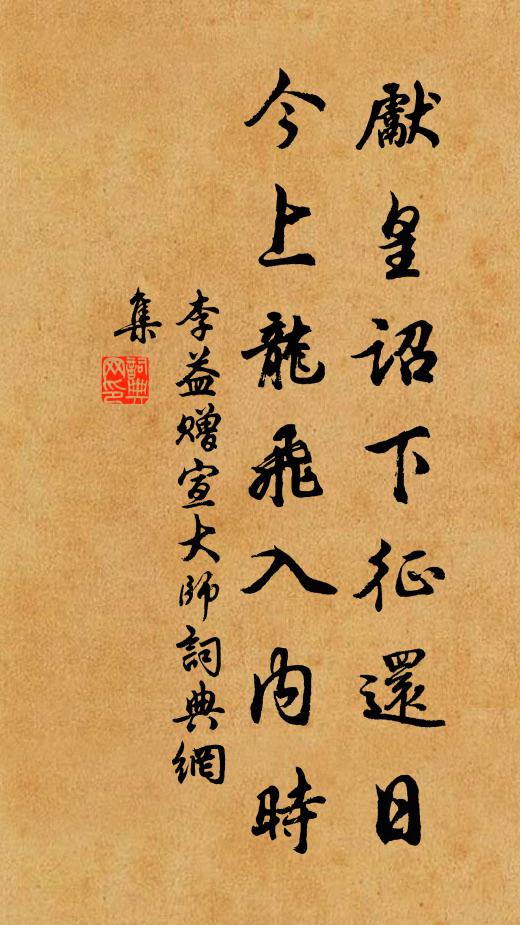 獻皇詔下征還日
今上龍飛入内時
李益赠宣大師詞典網
集
詞典网印